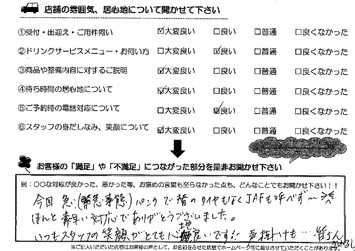 店舗の雰囲気、居心地について聞かせて下さい
①受付・出迎え・ご用件伺い ☑大変良い □良い □普通 □良くなかった
②ドリンクサービスメニュー・お伺い方 □大変良い ☑良い □普通 □良くなかった
③商品や整備内容に対するご説明 ☑大変良い □良い □普通 □良くなかった
④待ち時間の居心地について ☑大変良い □良い □普通 □良くなかった
⑤ご予約時の電話対応について □大変良い ☑良い □普通 □良くなかった
⑥スタッフの身だしなみ、笑顔について ☑大変良い □良い □普通 □良くなかった
お客様の「満足」や「不満足」につながった部分を是非お聞かせ下さい
例:〇〇な対応が良かった、悪かった等、お褒めの言葉も至らなかった点も、どんなことでもお聞かせ下さい!!
今回 急い(緊急事態) パンクで 替のタイヤもなく JAFも呼べず
ほんと 素早い対応でありがとうございました。
いつもスタッフの笑顔がとても
※ご記入いただいた内容はお客様の声として、お名前をふせた状態でホームページ等に